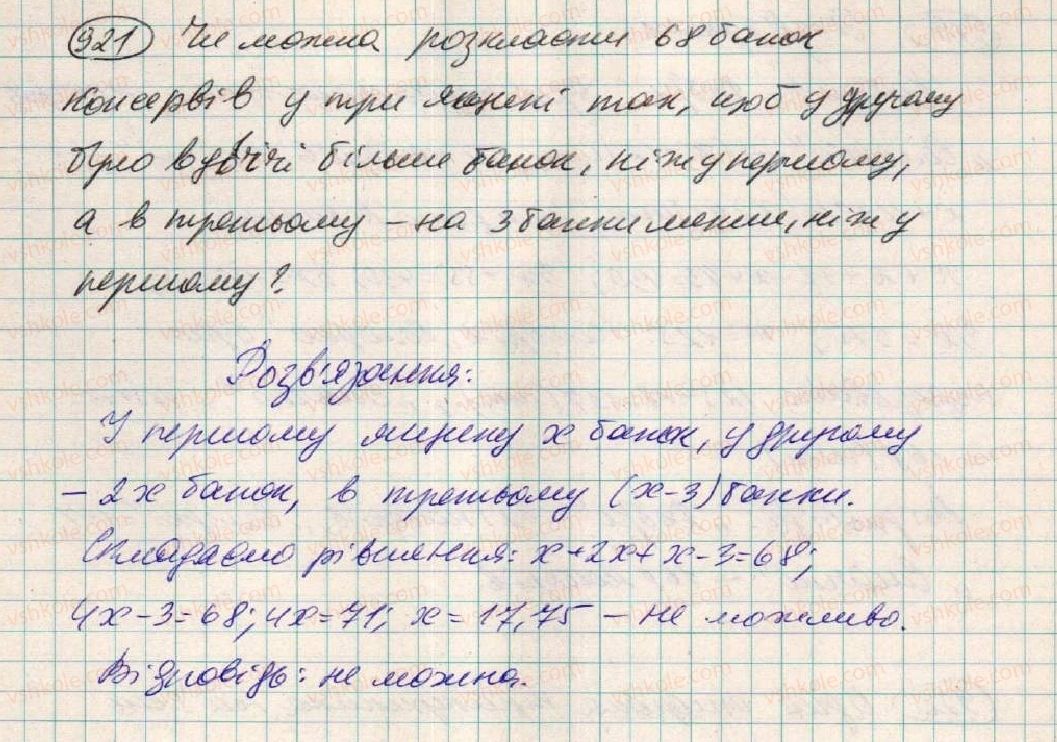 921 Чи можна розкласти 68 банок
консервів у три ящики так, щоб у другому
було вдвічі більше банок, ніж у першому,
а в третьому – на 3 банки менше, ніж у
першому?
Розв'язання:
У першому ящику х банок, у другому
– 2х банок, в третьому (х-3) банки.
Складаємо рівняння: х+2х+х-3=68;
4х-3=68; 4х=71; х=17,75 – не можливо.
Відповідь: не можна.